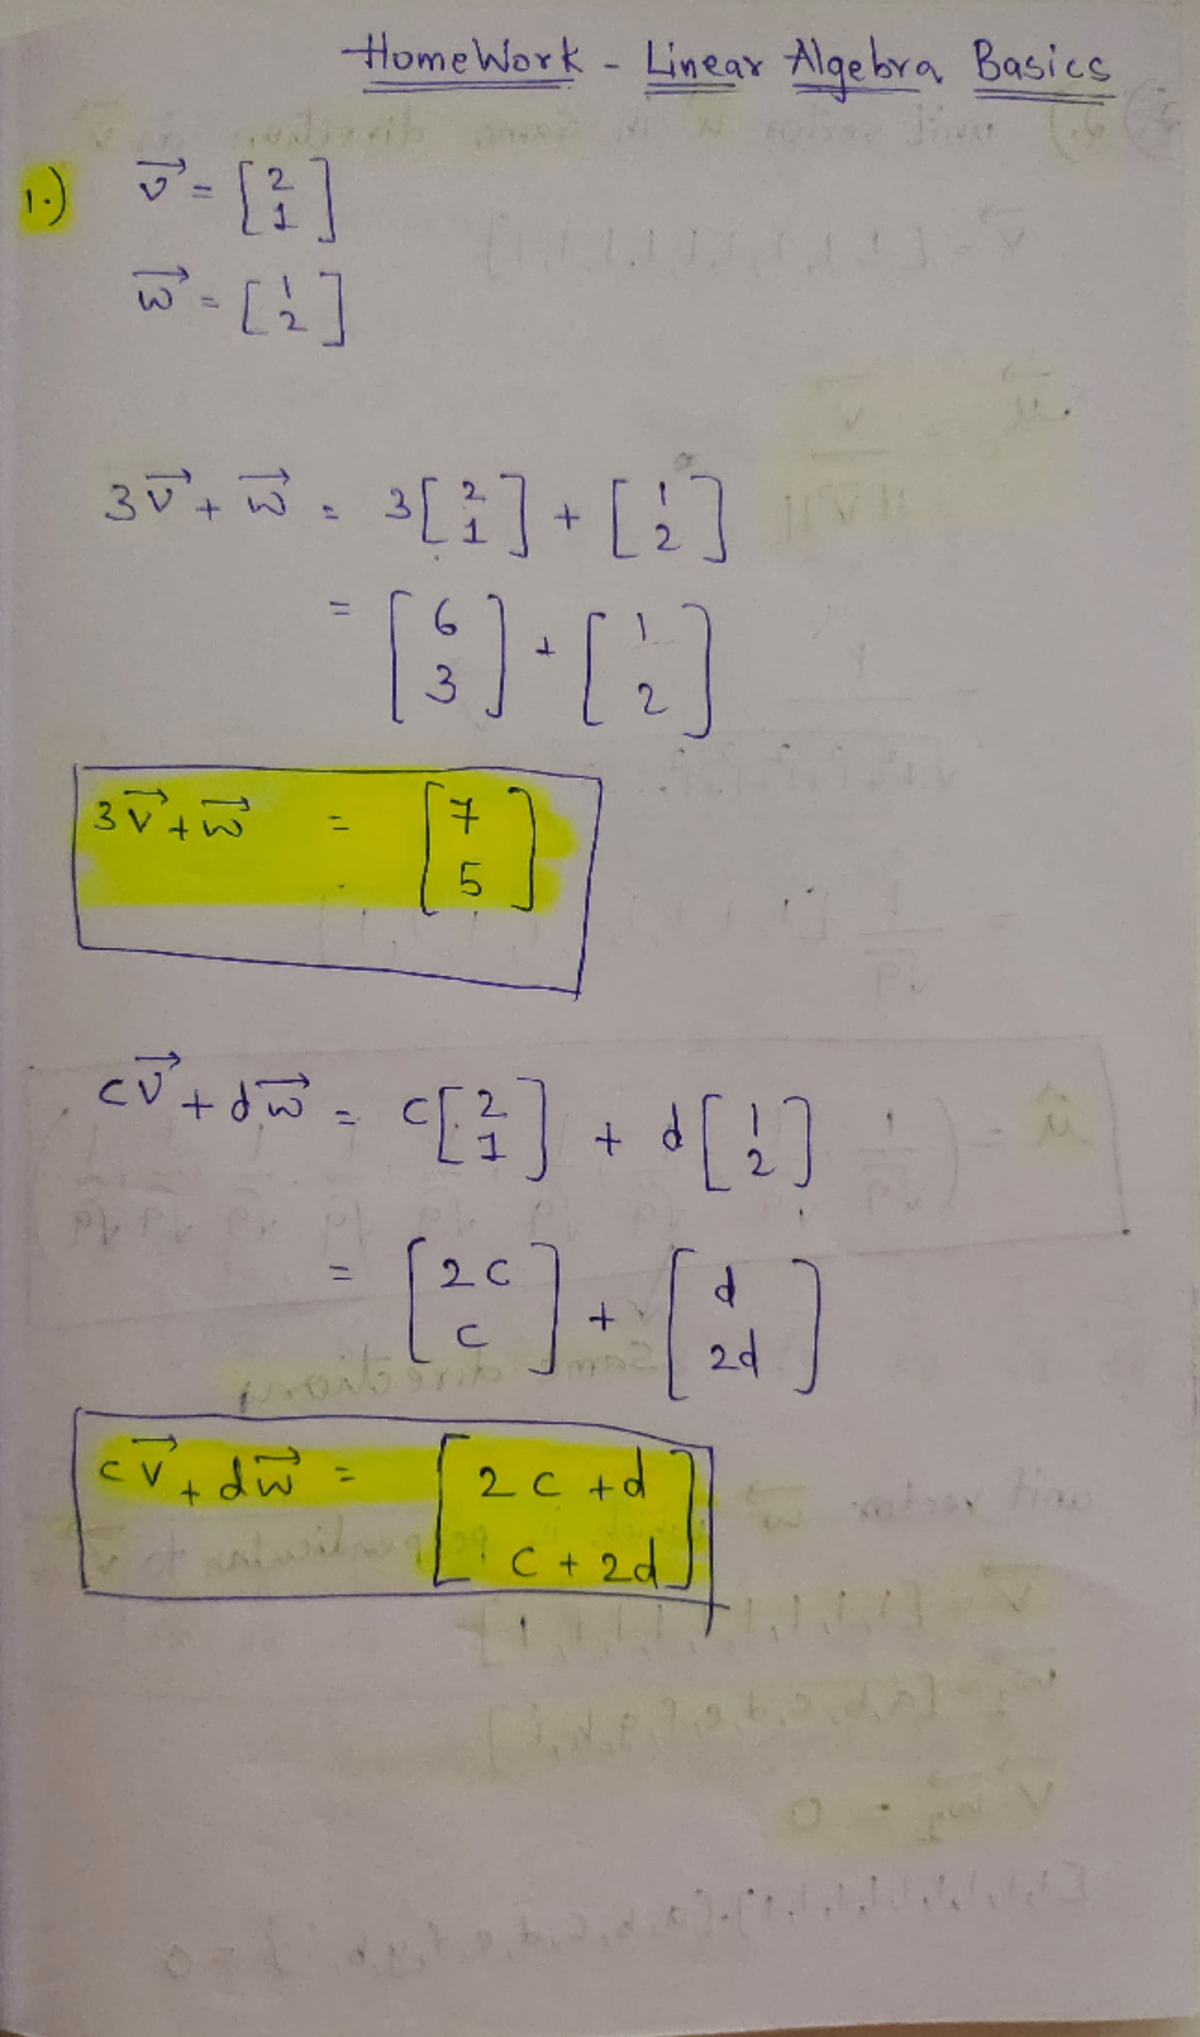 HomeWork - Linear Algebra Basics
1.) v⃗ = [2
1]
w⃗ = [1
2]
3v⃗ + w⃗ = 3[2
1] + [1
2]
= [6
3] + [1
2]
3v⃗ + w⃗ = [7
5]
cv⃗ + dw⃗ = c[2
1] + d[1
2]
= [2c
c] + [d
2d]
cv⃗ + dw⃗ = [2c + d
c + 2d]